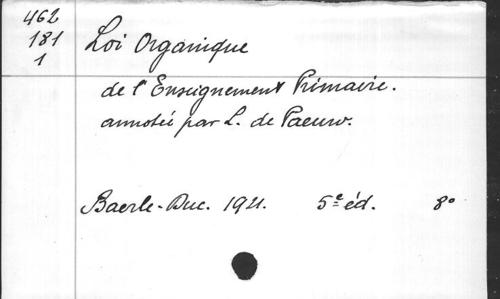 462
181
1
Loi Organique
de l'Enseignement Primaire.
annotée par L. de Paeuw.
Baerle-Duc. 1921. 5e éd. 8°